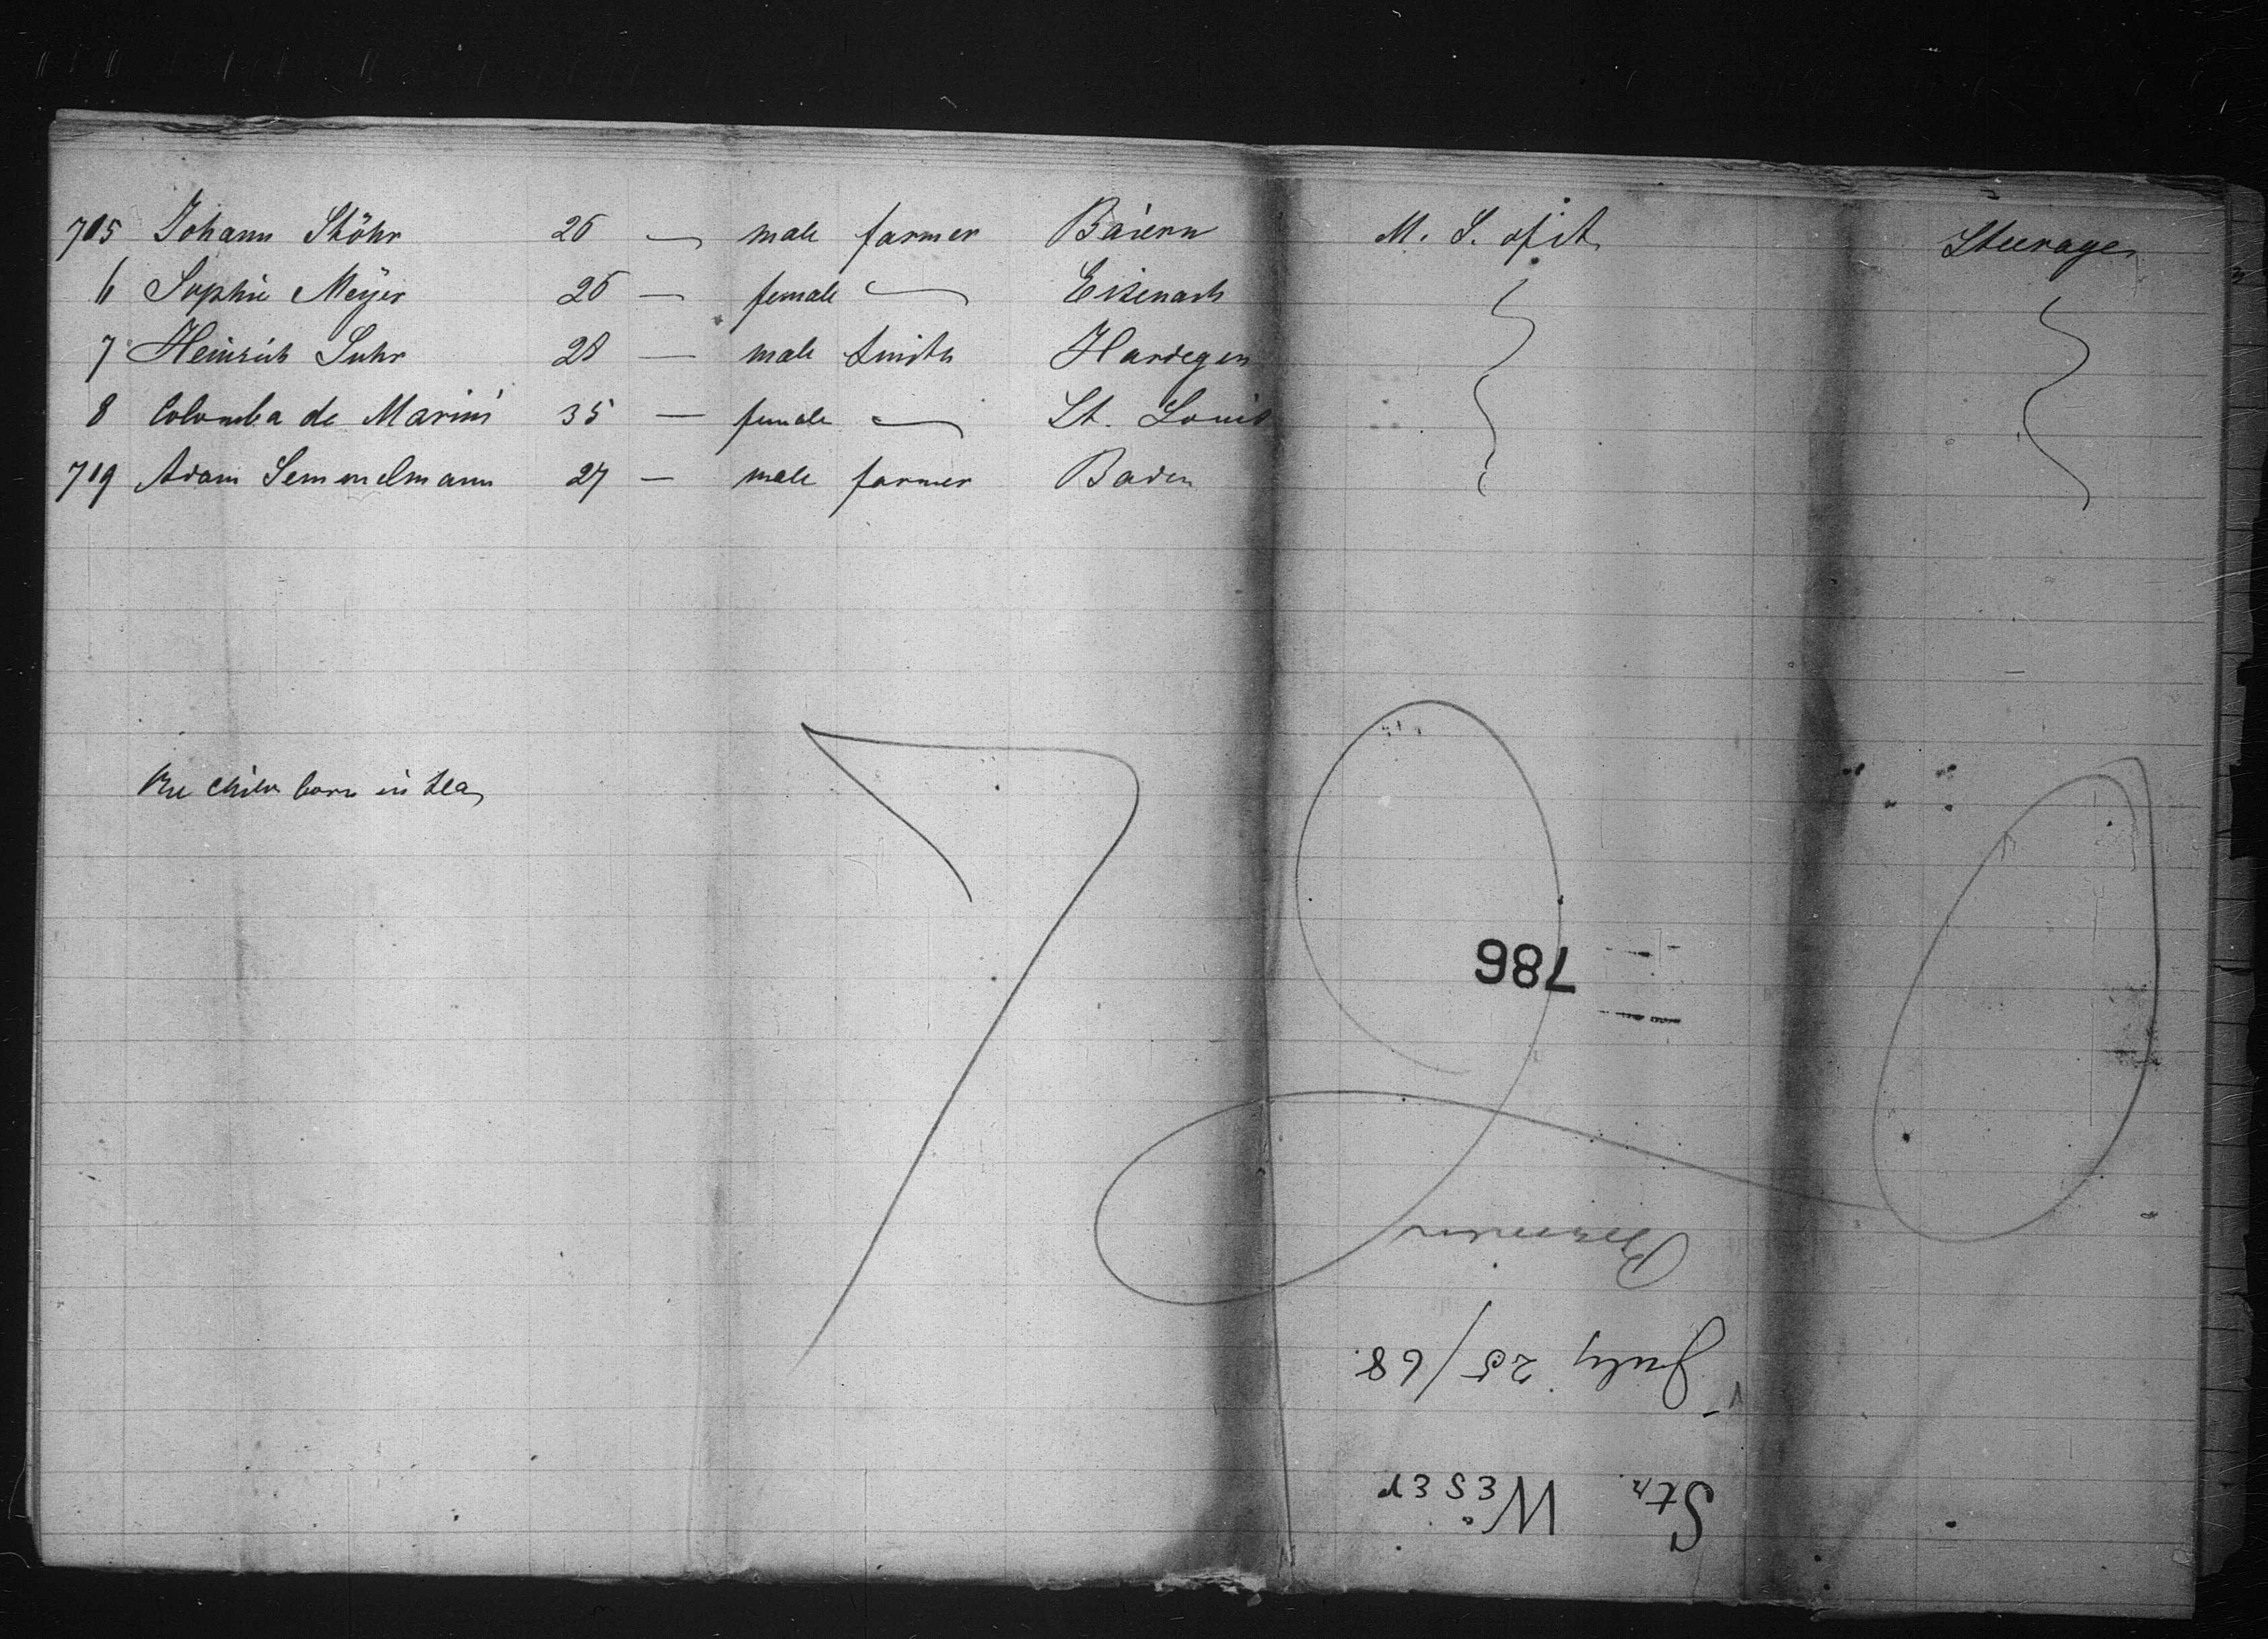 705 Johann Stöhr 26 — male farmer Baiern M. S. of it Steerage
6 Sophie Meÿer 26 — female — Eisenach
7 Heinrich Suhr 28 — male Smith Hardegen
8 Colomba de Marini 35 — female — St. Louis
719 Adam Semmelmann 27 — male farmer Baden
One child born in Sea
786
Bremen
July 25/68.
Str. Weser